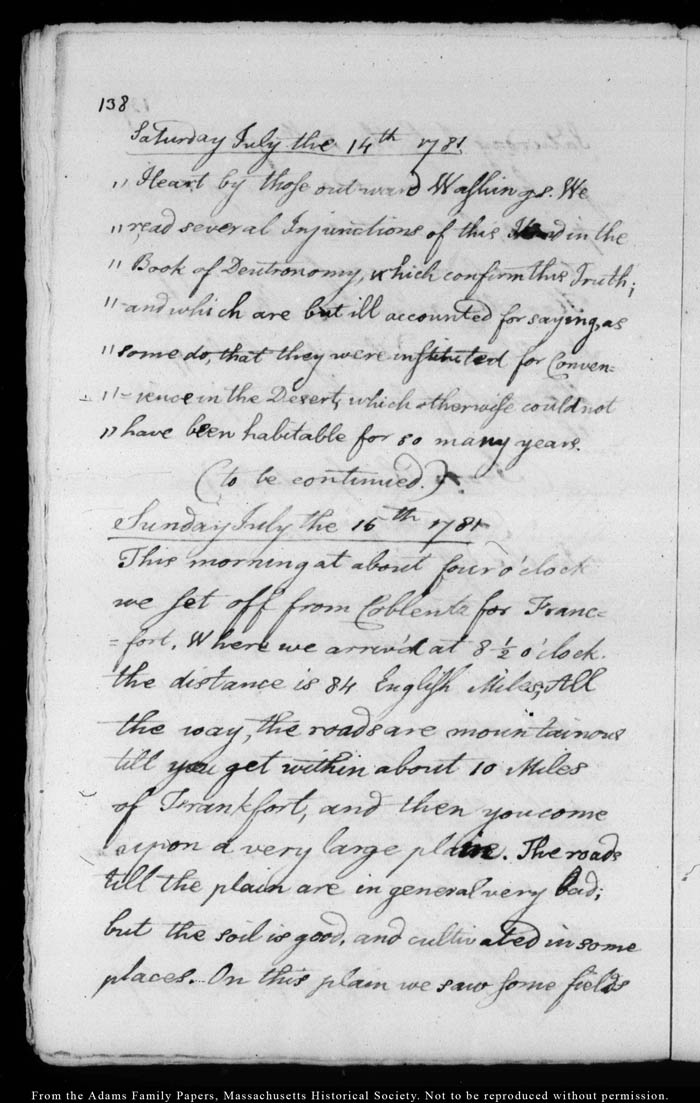 138
Saturday July the 14th 1781
" Heart by those outward Washings. We
" read several Injunctions of this Kind in the
" Book of Deutronomy, which confirm this Truth;
" and which are but ill accounted for saying, as
" some do, that they were instituted for Conven=
" =ience in the Desert, which otherwise could not
" have been habitable for so many years.
(to be continued.)
Sunday July the 15th 1781
This morning at about four o'clock
we set off from Coblentz for Franc=
=fort. Where we arriv'd at 8 1/2 o'clock.
the distance is 84 English Miles, All
the way, the roads are mountainous
till you get within about 10 Miles
of Frankfort, and then you come
upon a very large plain. The roads
till the plain are in general very bad;
but the soil is good, and cultivated in some
places. On this plain we saw some fields
From the Adams Family Papers, Massachusetts Historical Society. Not to be reproduced without permission.